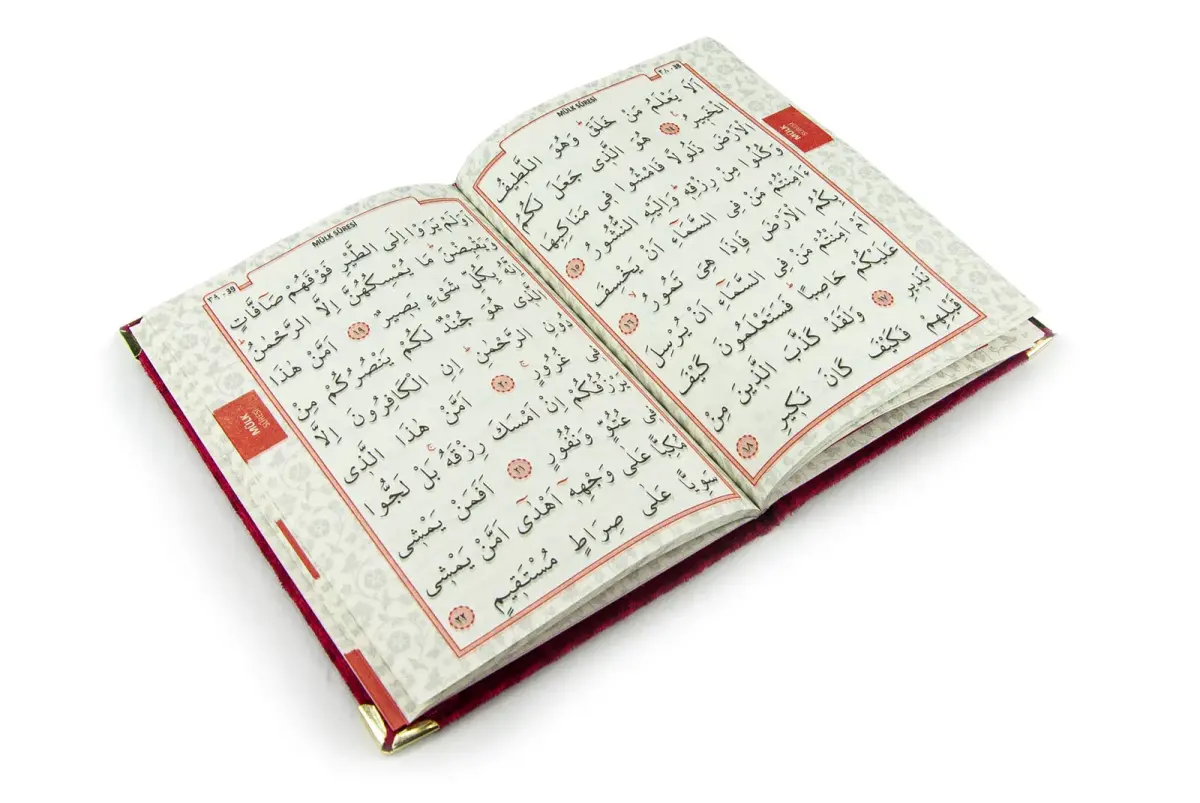 ٣٨ - 38
MÜLK SÛRESİ
اَلَا يَعْلَمُ مَنْ خَلَقَۜ وَهُوَ اللَّط۪يفُ
الْخَب۪يرُ۟ ١٤ هُوَ الَّذ۪ي جَعَلَ لَكُمُ
الْاَرْضَ ذَلُولاً فَامْشُوا ف۪ي مَنَاكِبِهَا
وَكُلُوا مِنْ رِزْقِه۪ۜ وَاِلَيْهِ النُّشُورُ ١٥
ءَاَمِنْتُمْ مَنْ فِي السَّمَٓاءِ اَنْ يَخْسِفَ
بِكُمُ الْاَرْضَ فَاِذَا هِيَ تَمُورُۙ ١٦
اَمْ اَمِنْتُمْ مَنْ فِي السَّمَٓاءِ اَنْ يُرْسِلَ
عَلَيْكُمْ حَاصِباًۜ فَسَتَعْلَمُونَ كَيْفَ
نَذ۪يرِ ١٧ وَلَقَدْ كَذَّبَ الَّذ۪ينَ مِنْ
قَبْلِهِمْ فَكَيْفَ كَانَ نَك۪يرِ ١٨
MÜLK
SÛRESİ
٣٩ - 39
MÜLK SÛRESİ
اَوَلَمْ يَرَوْا اِلَى الطَّيْرِ فَوْقَهُمْ صَٓافَّاتٍ
وَيَقْبِضْنَۜ مَا يُمْسِكُهُنَّ اِلَّا الرَّحْمٰنُۜ
اِنَّهُ بِكُلِّ شَيْءٍ بَص۪يرٌ ١٩ اَمَّنْ هٰذَا
الَّذ۪ي هُوَ جُنْدٌ لَكُمْ يَنْصُرُكُمْ مِنْ
دُونِ الرَّحْمٰنِۜ اِنِ الْكَافِرُونَ اِلَّا
ف۪ي غُرُورٍۚ ٢٠ اَمَّنْ هٰذَا الَّذ۪ي
يَرْزُقُكُمْ اِنْ اَمْسَكَ رِزْقَهُۚ بَلْ لَجُّوا
ف۪ي عُتُوٍّ وَنُفُورٍ ٢١ اَفَمَنْ يَمْش۪ي
مُكِباًّ عَلٰى وَجْهِه۪ٓ اَهْدٰٓى اَمَّنْ يَمْش۪ي
سَوِياًّ عَلٰى صِرَاطٍ مُسْتَق۪يمٍ ٢٢
MÜLK
SÛRESİ